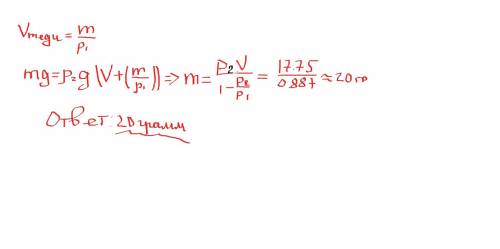 Vмеди = m/ρ₁
mg = ρ₂g(V+(m/ρ₁)) => m = ρ₂V/(1-ρ₂/ρ₁) = 17.75/0.887 ≈ 20 гр
Ответ: 20 грамм